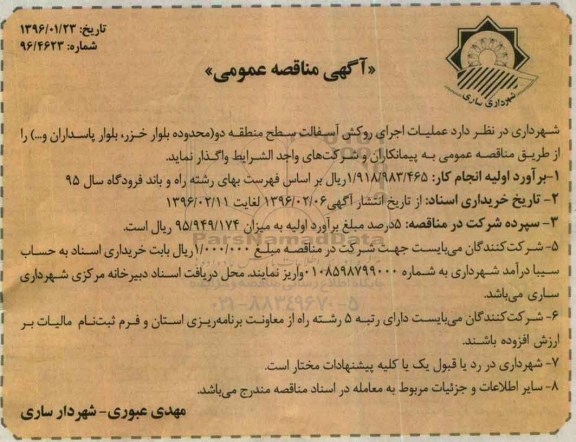 تاریخ: ۱۳۹۶/۰۱/۲۳
شماره: ۹۶/۴۶۲۳
شهرداری ساری
«آگهی مناقصه عمومی»
شهرداری در نظر دارد عملیات اجرای روکش آسفالت سطح منطقه دو(محدوده بلوار خزر، بلوار پاسداران و...) را
از طریق مناقصه عمومی به پیمانکاران و شرکت‌های واجد الشرایط واگذار نماید.
۱- برآورد اولیه انجام کار: ۱/۹۱۸/۹۸۳/۴۶۵ریال بر اساس فهرست بهای رشته راه و باند فرودگاه سال ۹۵
۲- تاریخ خریداری اسناد: از تاریخ انتشار آگهی۱۳۹۶/۰۲/۰۶ لغایت ۱۳۹۶/۰۲/۱۱
۳- سپرده شرکت در مناقصه: ۵درصد مبلغ برآورد اولیه به میزان ۹۵/۹۴۹/۱۷۴ ریال است.
۵- شرکت‌کنندگان می‌بایست جهت شرکت در مناقصه مبلغ ۱/۰۰۰/۰۰۰ریال بابت خریداری اسناد به حساب
سیبا درآمد شهرداری به شماره ۰۱۰۸۵۹۸۷۹۹۰۰۰واریز نمایند. محل دریافت اسناد دبیرخانه مرکزی شهرداری
ساری می‌باشد.
۶- شرکت‌کنندگان می‌بایست دارای رتبه ۵ رشته راه از معاونت برنامه‌ریزی استان و فرم ثبت‌نام مالیات بر
ارزش افزوده باشند.
۷- شهرداری در رد یا قبول یک یا کلیه پیشنهادات مختار است.
۸- سایر اطلاعات و جزئیات مربوط به معامله در اسناد مناقصه مندرج می‌باشد.
مهدی عبوری- شهردار ساری
ParsNamadData
۰۲۱-۸۸۳۴۹۶۷۰-۵